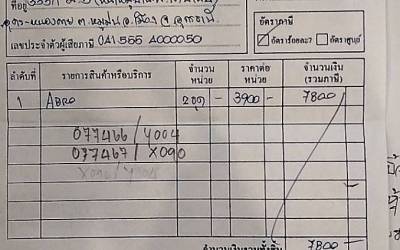 ที่อยู่
ต.หมูม่น อ.เมือง จ.อุดรธานี
เลขประจำตัวผู้เสียภาษี 0A1 555 A000050
อัตราภาษี
อัตราร้อยละ7 อัตราศูนย์
ลำดับที่ รายการสินค้าหรือบริการ จำนวนหน่วย ราคาต่อหน่วย จำนวนเงิน (รวมภาษี)
1 ABRO 2ชุด - 3900 - 7800
077466 / Y004
077467 / X090
X090 /
จำนวนเงินรวมทั้งสิ้น 7800